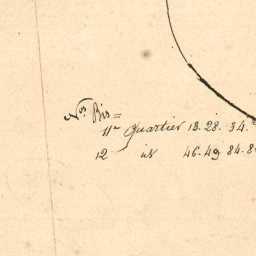 Nos Bis =
11e Quartier 13. 28. 34.
12 id 46. 49 84. 8